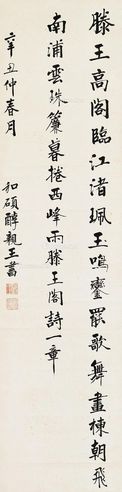 滕王高閣臨江渚珮玉鳴鑾罷歌舞畫棟朝飛
南浦雲珠簾暮捲西峰雨滕王閣詩一章
辛丑仲春月
和碩醇親王書